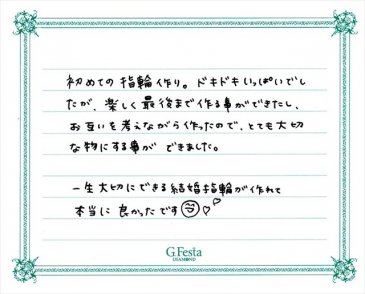 初めての指輪作り。ドキドキいっぱいでし
たが、楽しく最後まで作る事ができたし、
お互いを考えながら作ったので、とても大切
な物にする事ができました。
一生大切にできる結婚指輪が作れて
本当に良かったです
G.Festa
DIAMOND